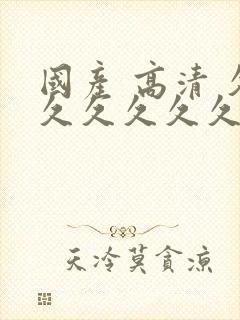 國產 高清 久
久久久久久
天冷莫貪涼